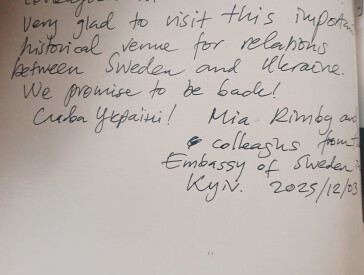 very glad to visit this importa
historical venue for relations
between Sweden and Ukraine.
We promise to be back!
Слава Україні! Mia Rimby and
colleagus from t
Embassy of Sweden i
Kyiv. 2025/12/03